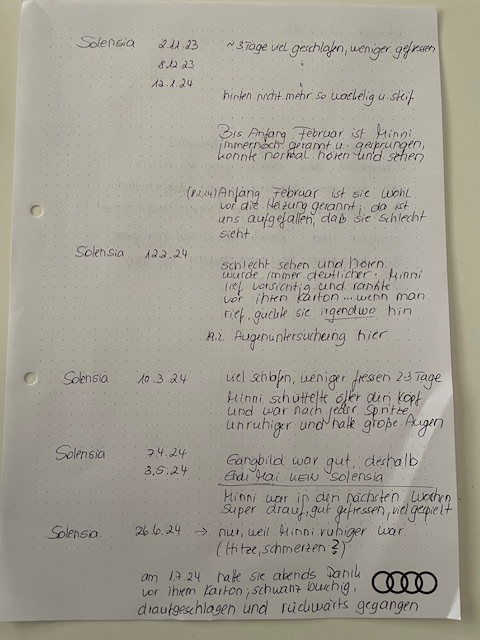 Solensia 2.11.23 ~3 Tage viel geschlafen, weniger gefressen
8.12.23 "
12.1.24 "
hinten nicht mehr so wackelig u. steif
Bis Anfang Februar ist Minni
immernoch gerannt u. gesprungen,
konnte normal hören und sehen
Anfang Februar ist sie wohl
vor die Heizung gerannt; da ist
uns aufgefallen, daß sie schlecht
sieht
Solensia 12.2.24
schlecht sehen und hören
wurde immer deutlicher. Minni
lief vorsichtig und rannte
vor ihren Karton... wenn man
rief, guckte sie irgendwo hin
19.2. Augenuntersuchung hier
Solensia 10.3.24 viel schlafen, weniger fressen 2-3 Tage
Minni schüttelte öfter den Kopf
und war nach jeder Spritze
unruhiger und hatte große Augen
Solensia 7.4.24 Gangbild war gut, deshalb
3.5.24 Ende Mai KEIN Solensia
Minni war in den nächsten Wochen
super drauf, gut gefressen, viel gespielt
Solensia 26.6.24 → nur, weil Minni ruhiger war
(Hitze, Schmerzen?)
am 1.7.24 hatte sie abends Panik
vor ihrem Karton, schwanz buschig,
draufgeschlagen und rückwärts gegangen